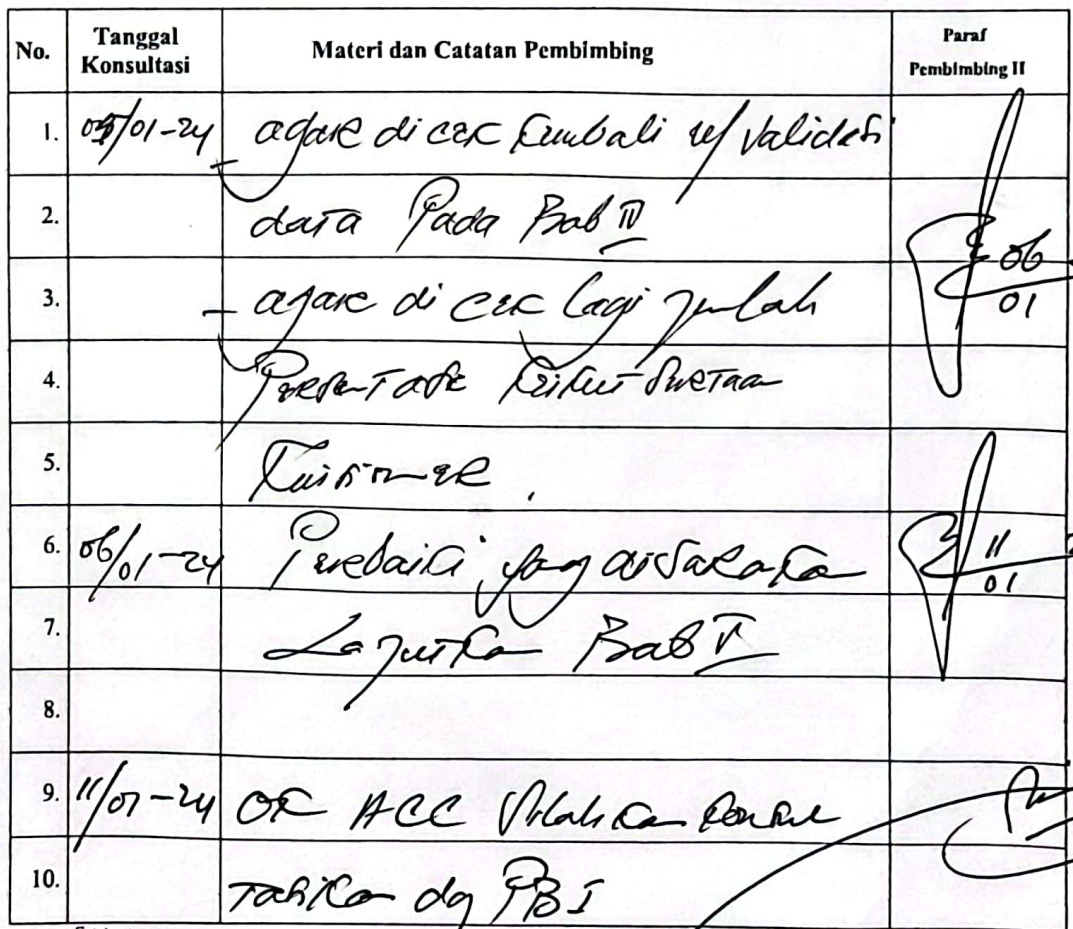 No. Tanggal Konsultasi Materi dan Catatan Pembimbing Paraf Pembimbing II
1. 05/01-24 - agar di cek kembali u/ validasi
2. data Pada Bab IV
06/01
3. - agar di cek lagi jumlah
4. Presentase
5. Kuisioner
6. 06/01-24 Perbaiki yang disarankan
11/01
7. Lanjutkan Bab V
8.
9. 11/01-24 OK ACC Silahkan konsul
10. tasikan dg PB I